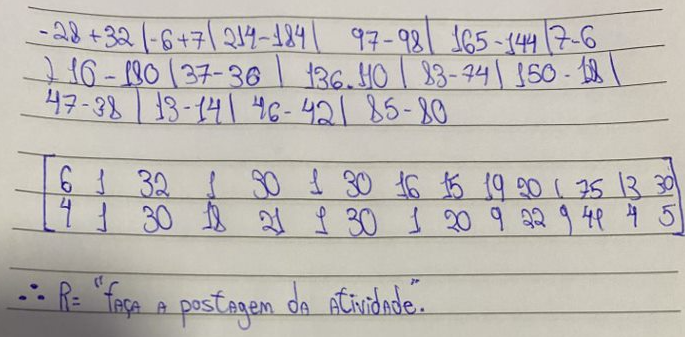 -28+32 |-6+7| 214-184| 97-98| 165-144 |7-6
) 16-180 |37-36 | 136.110 | 83-74| 150-128|
47-38 | 13-14| 46-42| 85-80
6 1 32 1 30 1 30 16 15 19 20 ( 75 13 30
4 1 30 18 21 1 30 1 20 9 22 9 49 4 5
∴ R= "faça a postagem da atividade".